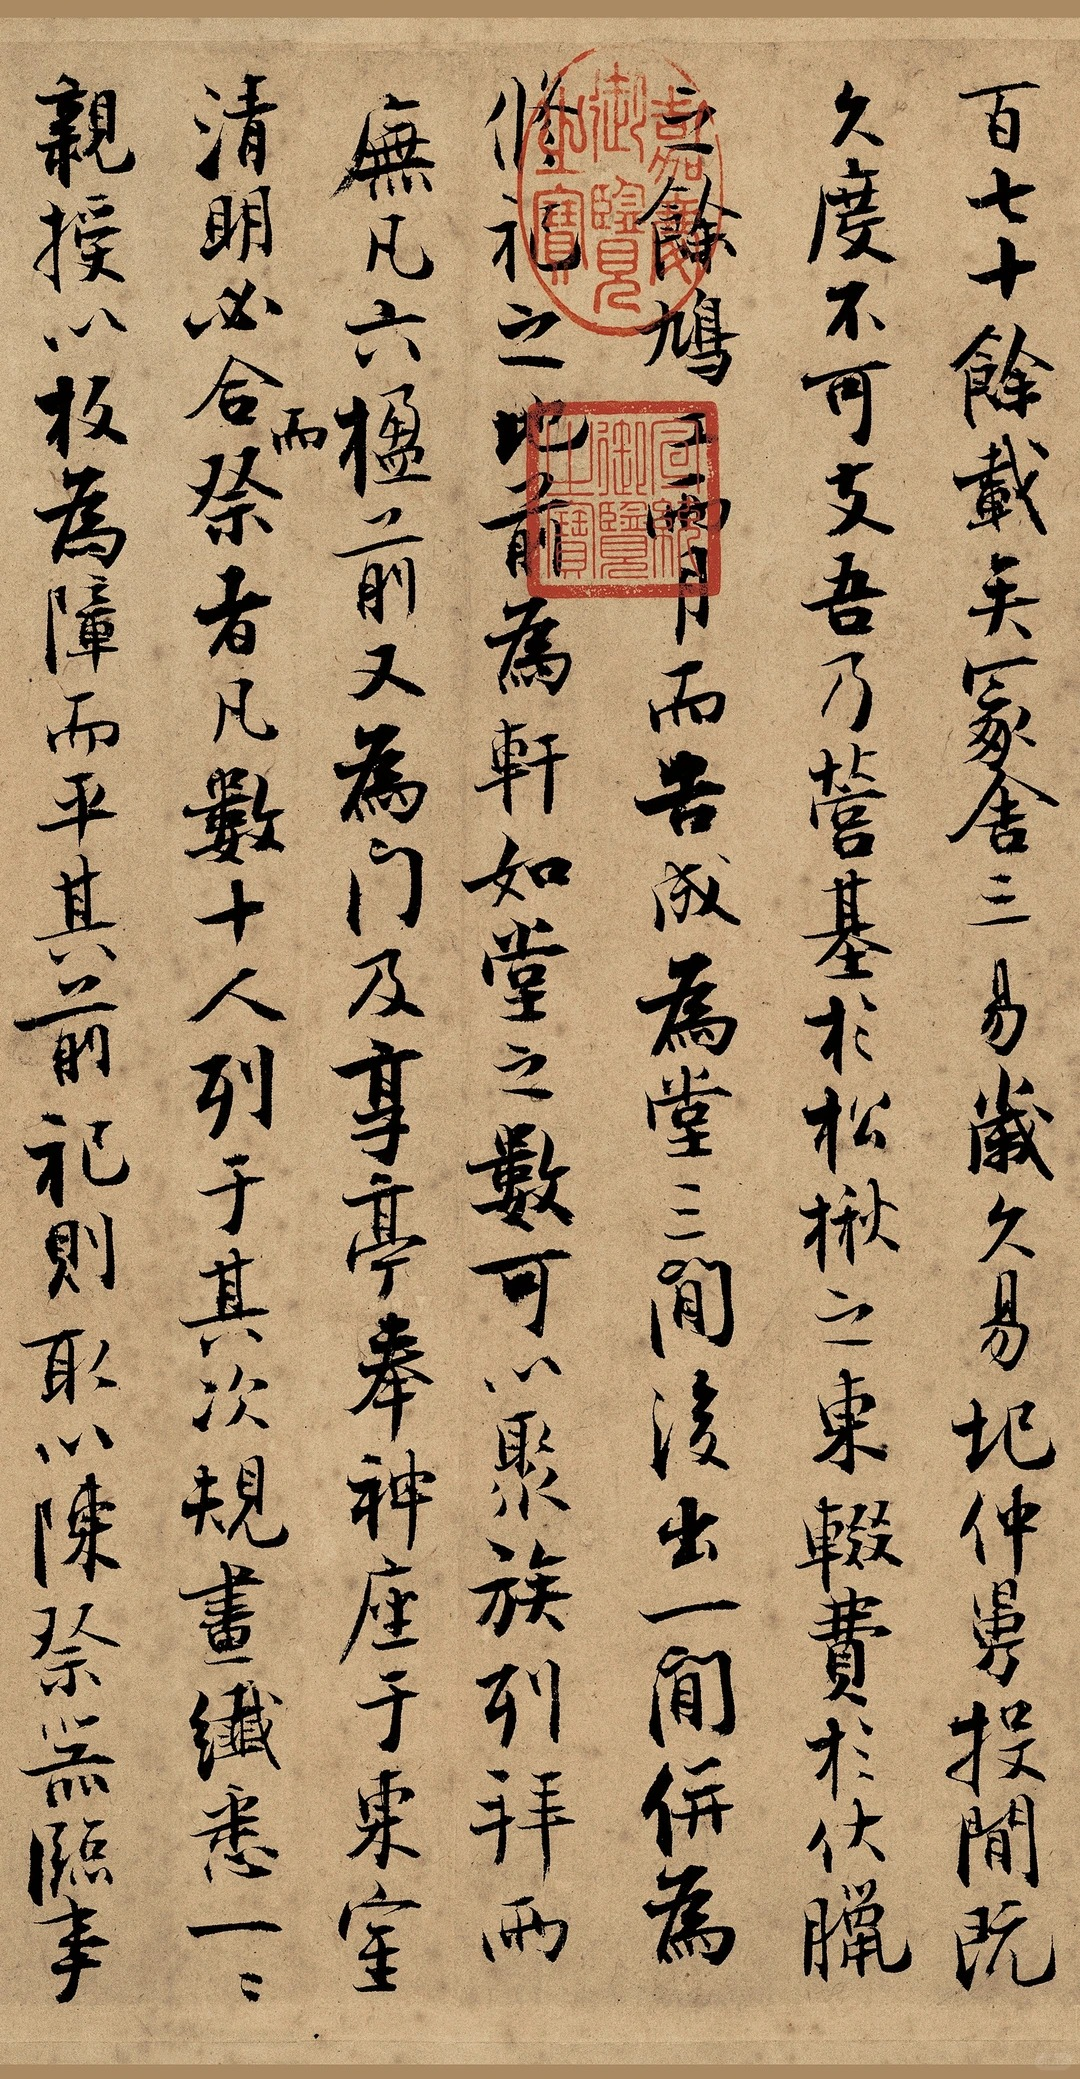 百七十餘載矣冢舍三易歲久易圮仲舅投閒既
久度不可支吾乃營基於松楸之東輟費於伏臘
之餘鳩工兩月而告成為堂三間後出一間併為
脩祀之地前為軒如堂之數可以聚族列拜兩
廡凡六楹前又為門及享亭奉神座于東室
清明必合祭而者凡數十人列于其次規畫纖悉一〻
親授以板為障而平其前祀則取以陳祭器臨事
嘉慶御覽之寶
宣統御覽之寶